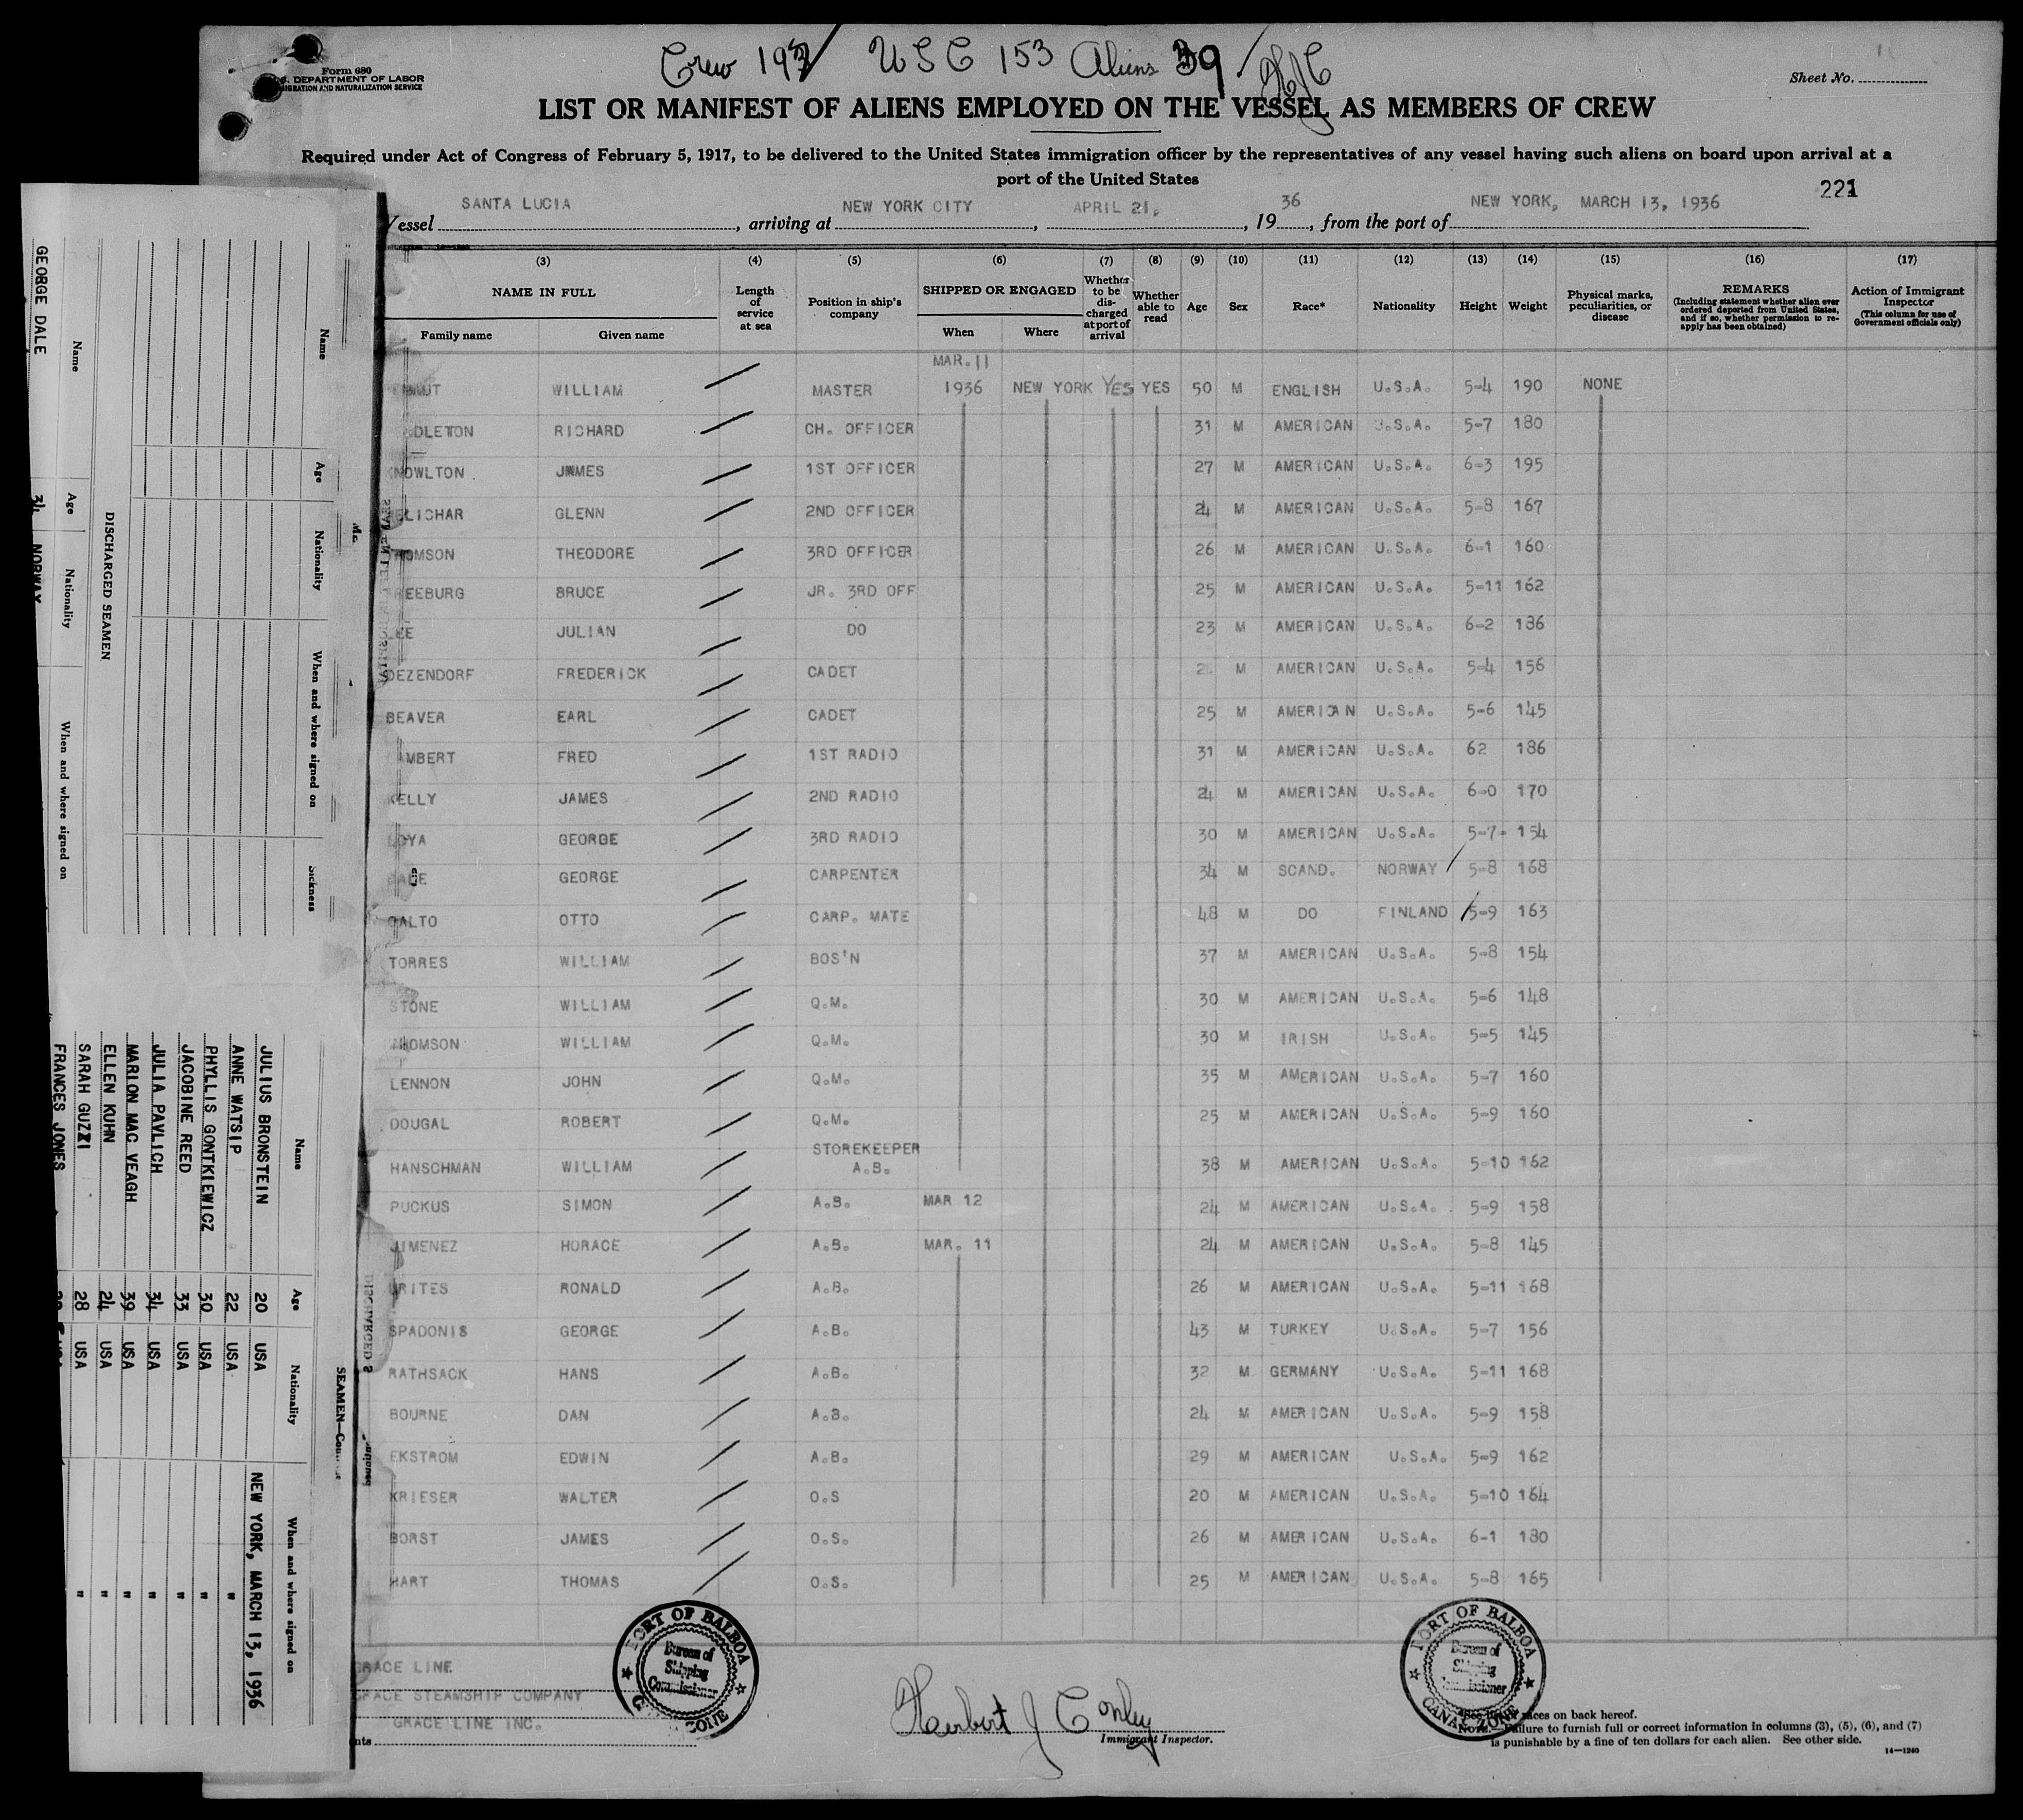 Crew 193 USC 153 Aliens 39
Form 680
U.S. DEPARTMENT OF LABOR
IMMIGRATION AND NATURALIZATION SERVICE
Sheet No. 1
LIST OR MANIFEST OF ALIENS EMPLOYED ON THE VESSEL AS MEMBERS OF CREW
Required under Act of Congress of February 5, 1917, to be delivered to the United States immigration officer by the representatives of any vessel having such aliens on board upon arrival at a
port of the United States
221
Vessel SANTA LUCIA, arriving at NEW YORK CITY, APRIL 21, 1936, from the port of NEW YORK, MARCH 13, 1936
(3) (4) (5) (6) (7) (8) (9) (10) (11) (12) (13) (14) (15) (16) (17)
NAME IN FULL
Family name Given name
Length of service at sea
Position in ship's company
SHIPPED OR ENGAGED
When Where
Whether to be discharged at port of arrival
Whether able to read
Age Sex Race* Nationality Height Weight
Physical marks, peculiarities, or disease
REMARKS
(Including statement whether alien ever ordered deported from United States, and if so, whether permission to reapply has been obtained)
Action of Immigrant Inspector
(This column for use of Government officials only)
MAR. 11
WILLIAM MASTER 1936 NEW YORK YES YES 50 M ENGLISH U.S.A. 5-4 190 NONE
DLETON RICHARD CH. OFFICER 31 M AMERICAN U.S.A. 5-7 180
KNOWLTON JAMES 1ST OFFICER 27 M AMERICAN U.S.A. 6-3 195
LICHAR GLENN 2ND OFFICER 24 M AMERICAN U.S.A. 5-8 167
THOMSON THEODORE 3RD OFFICER 26 M AMERICAN U.S.A. 6-1 160
REEBURG BRUCE JR. 3RD OFF 25 M AMERICAN U.S.A. 5-11 162
LEE JULIAN DO 23 M AMERICAN U.S.A. 6-2 186
DEZENDORF FREDERICK CADET M AMERICAN U.S.A. 5-4 156
BEAVER EARL CADET 25 M AMERICAN U.S.A. 5-6 145
AMBERT FRED 1ST RADIO 31 M AMERICAN U.S.A. 62 186
KELLY JAMES 2ND RADIO 24 M AMERICAN U.S.A. 6-0 170
OYA GEORGE 3RD RADIO 30 M AMERICAN U.S.A. 5-7- 154
DALE GEORGE CARPENTER 34 M SCAND. NORWAY 5-8 168
OALTO OTTO CARP. MATE 48 M DO FINLAND 5-9 163
TORRES WILLIAM BOS'N 37 M AMERICAN U.S.A. 5-8 154
STONE WILLIAM Q.M. 30 M AMERICAN U.S.A. 5-6 148
THOMSON WILLIAM Q.M. 30 M IRISH U.S.A. 5-5 145
LENNON JOHN Q.M. 35 M AMERICAN U.S.A. 5-7 160
DOUGAL ROBERT Q.M. 25 M AMERICAN U.S.A. 5-9 160
HANSCHMAN WILLIAM STOREKEEPER A.B. 38 M AMERICAN U.S.A. 5-10 162
PUCKUS SIMON A.B. MAR 12 24 M AMERICAN U.S.A. 5-9 158
JIMENEZ HORACE A.B. MAR. 11 24 M AMERICAN U.S.A. 5-8 145
URITES RONALD A.B. 26 M AMERICAN U.S.A. 5-11 168
SPADONIS GEORGE A.B. 43 M TURKEY U.S.A. 5-7 156
RATHSACK HANS A.B. 32 M GERMANY U.S.A. 5-11 168
BOURNE DAN A.B. 24 M AMERICAN U.S.A. 5-9 158
EKSTROM EDWIN A.B. 29 M AMERICAN U.S.A. 5-9 162
KRIESER WALTER O.S 20 M AMERICAN U.S.A. 5-10 164
BORST JAMES O.S. 26 M AMERICAN U.S.A. 6-1 180
HART THOMAS O.S. 25 M AMERICAN U.S.A. 5-8 165
GRACE LINE
GRACE STEAMSHIP COMPANY
GRACE LINE INC.
PORT OF BALBOA
Bureau of Shipping Commissioner
CANAL ZONE
Herbert J Conley
Immigrant Inspector.
PORT OF BALBOA
Bureau of Shipping Commissioner
CANAL ZONE
races on back hereof.
NOTE.—Failure to furnish full or correct information in columns (3), (5), (6), and (7)
is punishable by a fine of ten dollars for each alien. See other side.
14—1240
Name Age Nationality When and where signed on Sickness
DISCHARGED SEAMEN
Name Age Nationality When and where signed on
GEORGE DALE 34 NORWAY
SEAMEN—Con
Name Age Nationality When and where signed on
JULIUS BRONSTEIN 20 USA NEW YORK, MARCH 13, 1936
ANNE WATSIP 22 USA "
PHYLLIS GONTKIEWICZ 30 USA "
JACOBINE REED 33 USA "
JULIA PAVLICH 34 USA "
MARION MAC VEAGH 39 USA "
ELLEN KUHN 24 USA "
SARAH GUZZI 28 USA "
FRANCES JONES